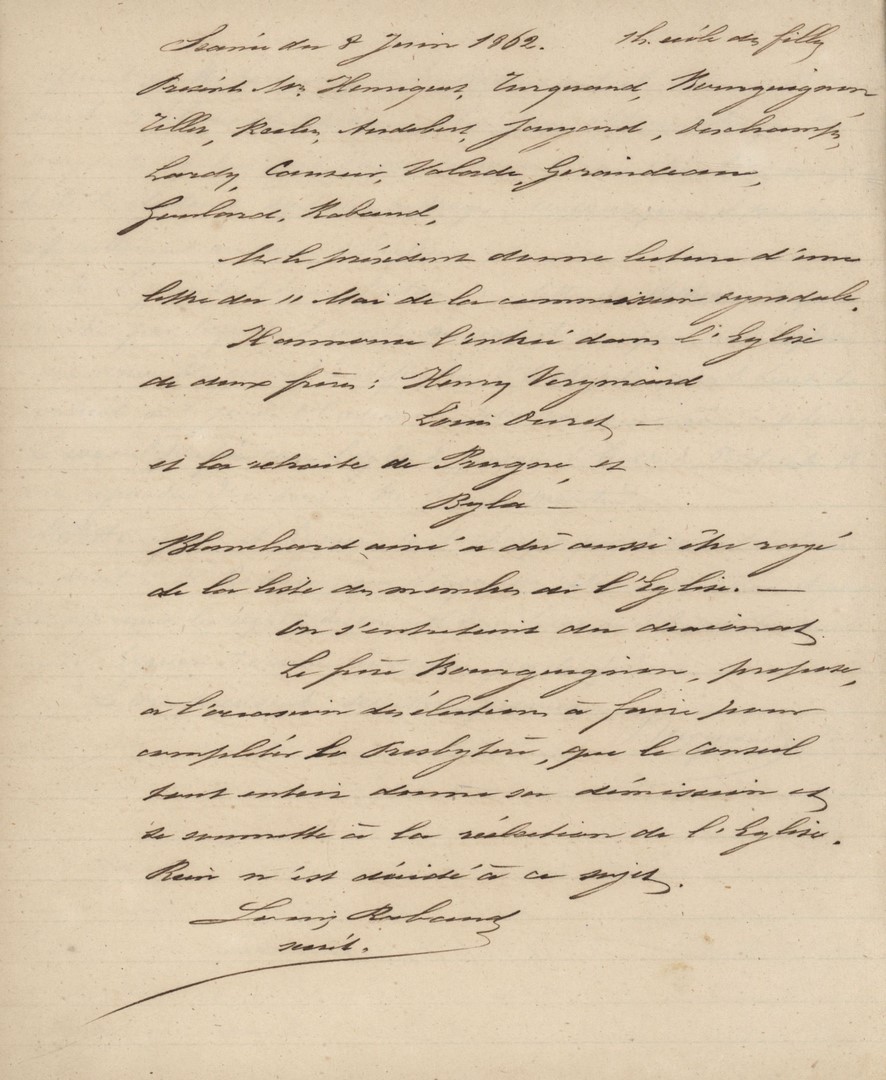 Séance du 8 Juin 1862. 1h. école des filles
Présents Mrs Henriquet, Turgerand, Bourguignon,
Tiller, Roslin, Audebert, Jougard, Deschamps,
Lardy, Causeir, Valade, Geraudeau,
Goulard, Rabaud,
Mr le président donne lecture d'une
lettre du 11 Mai de la commission synodale.
Il annonce l'entrée dans l'Eglise
de deux frères: Henry Vergniaud
Louis Duret —
et la retraite de Prugne, et
Byla —
Blanchard ainé a dû aussi être rayé
de la liste des membres de l'Eglise. —
On s'entretient du diaconat,
Le frère Bourguignon, propose,
à l'occasion des élections à faire pour
compléter le Presbytère, que le Conseil
tout entier donne sa démission et
se soumette à la réélection de l'Eglise.
Rien n'est décidé à ce sujet.
Louis Rabaud
secrét.